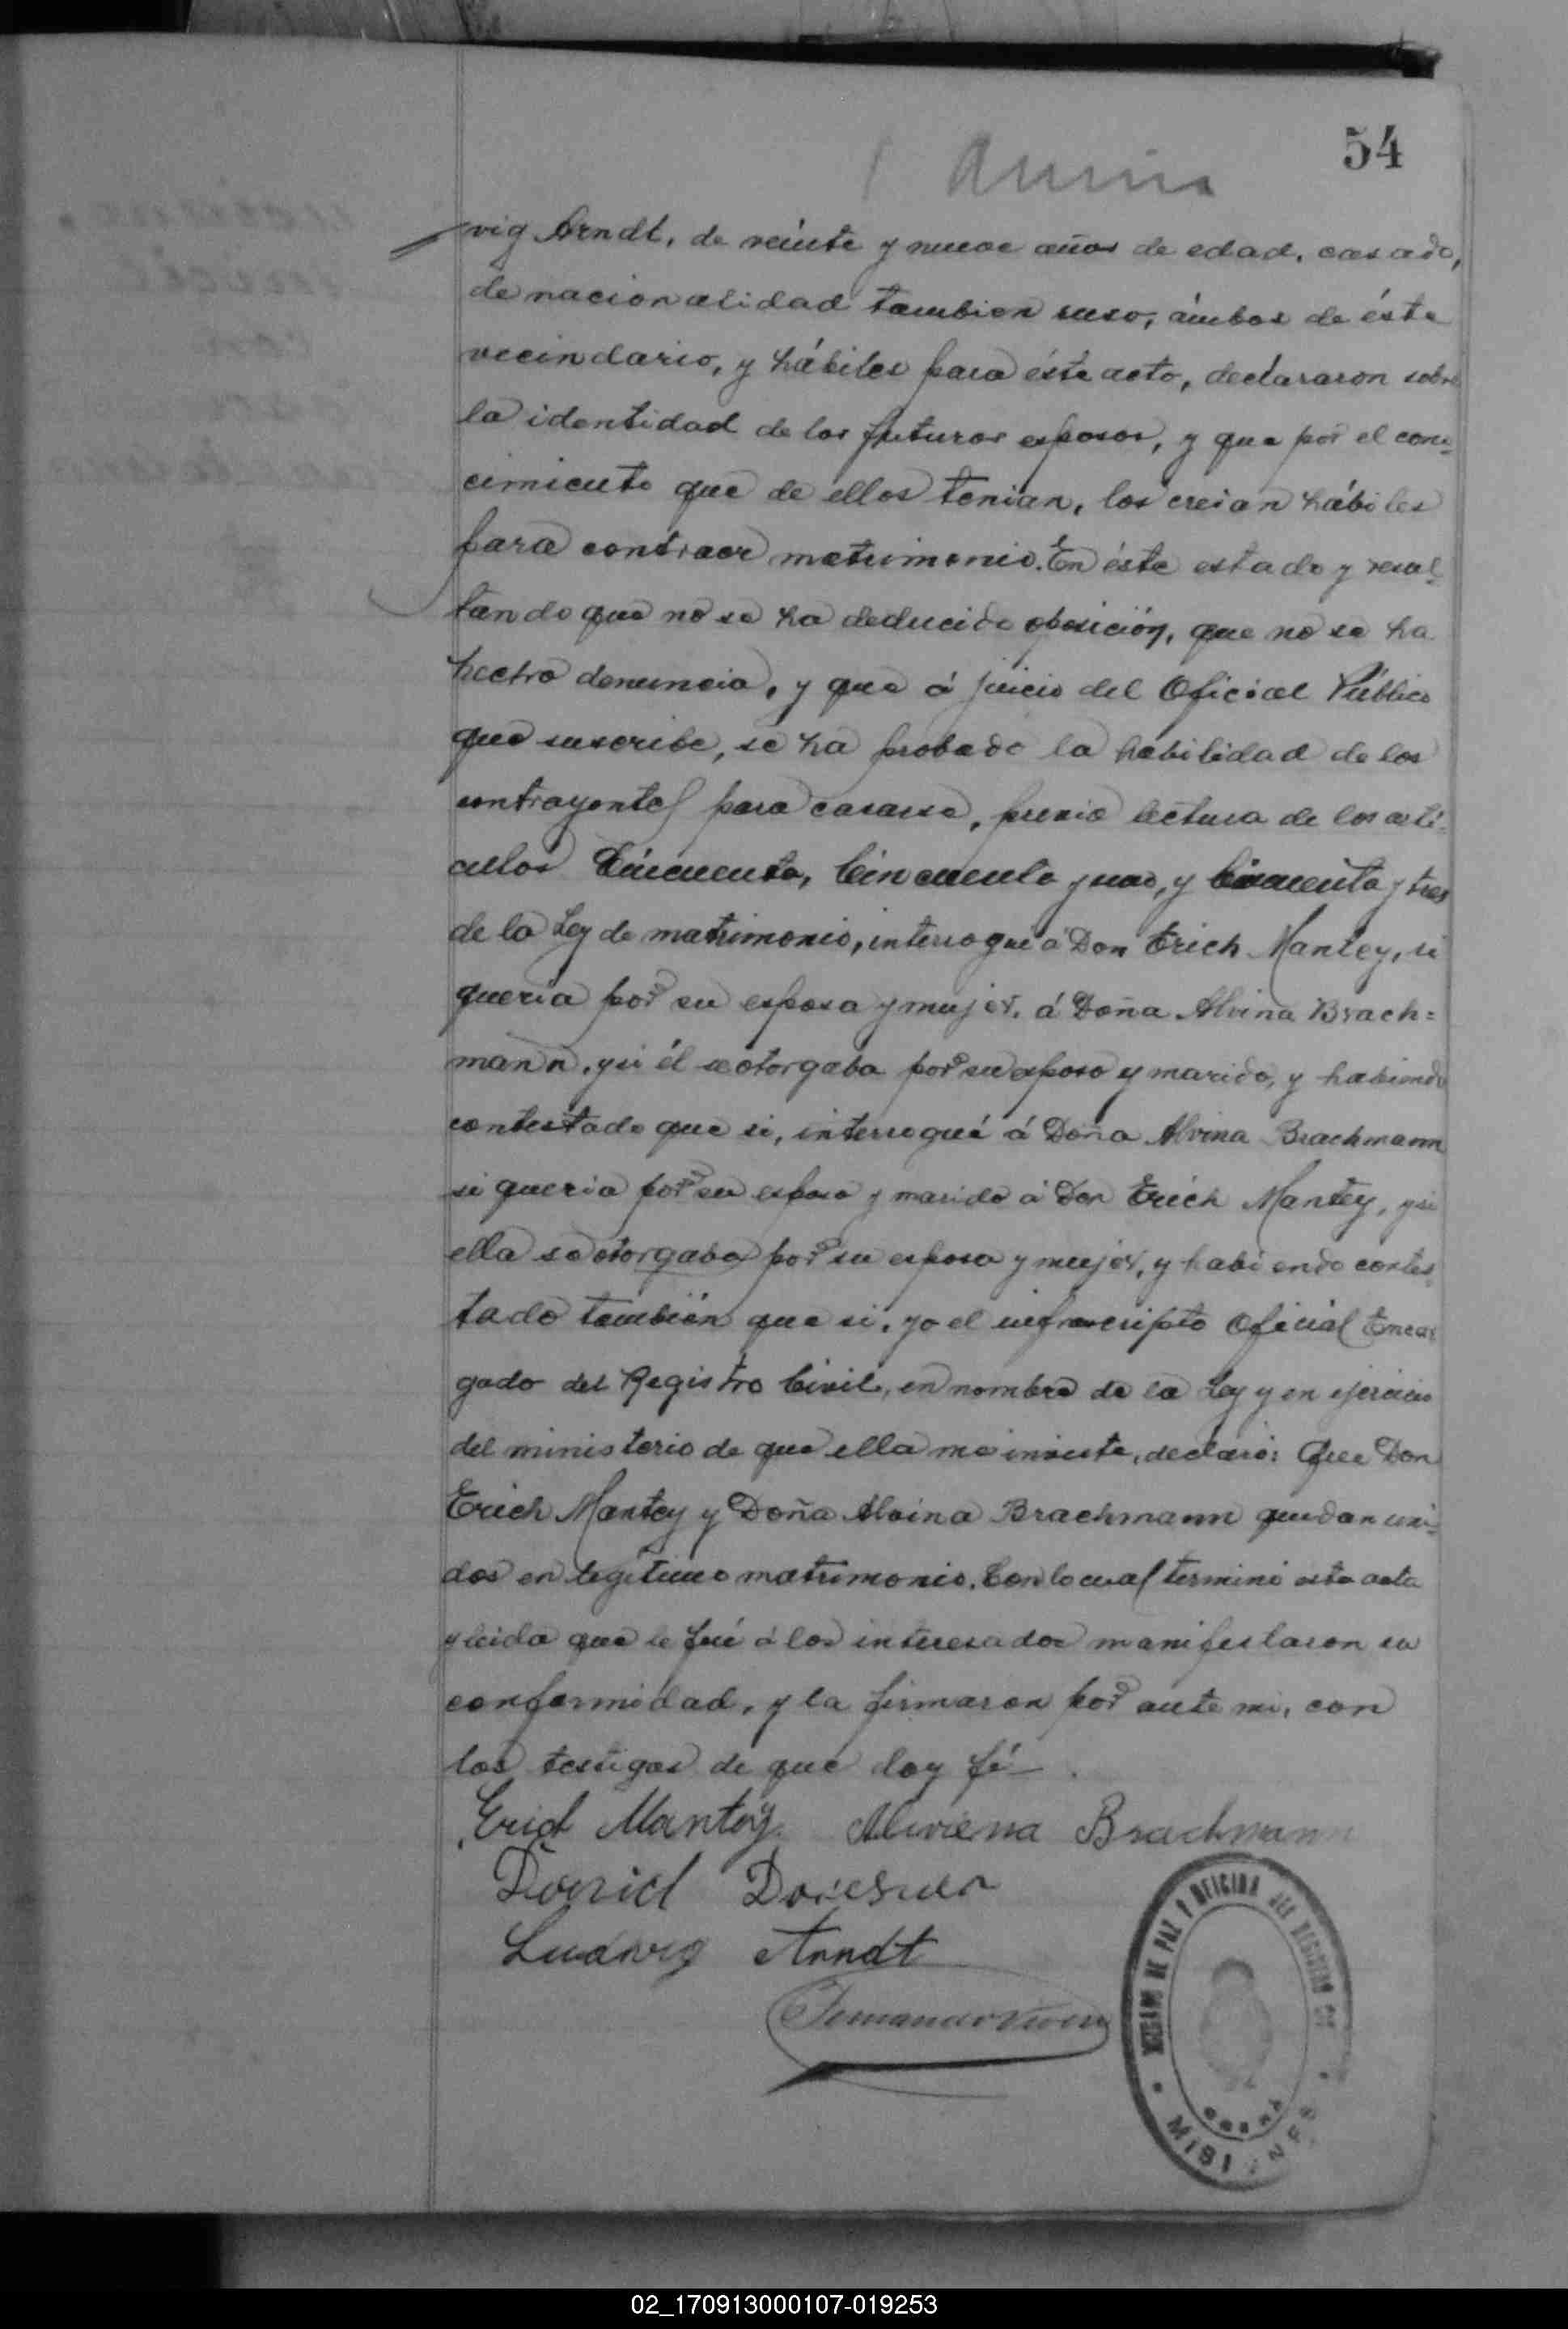 54
vig Arndt, de veinte y nueve años de edad, casado,
de nacionalidad tambien ruso, ámbos de éste
vecindario, y hábiles para éste acto, declararon sobre
la identidad de los futuros esposos, y que por el cono-
cimiento que de ellos tenian, los creian hábiles
para contraer matrimonio. En éste estado y resul-
tando que no se ha deducido oposición, que no se ha
hecho denuncia, y que á juicio del Oficial Público
que suscribe, se ha probado la habilidad de los
contrayentes para casarse, previa lectura de los artí-
culos Cincuenta, Cincuenta y uno, y Cincuenta y tres
de la Ley de matrimonio, interrogué á Don Erich Mantey, si
queria por su esposa y mujer, á Doña Alvina Brach=
mann, y si él se otorgaba por su esposo y marido, y habiendo
contestado que si, interrogué á Doña Alvina Brachmann
si queria por su esposo y marido á Don Erich Mantey, y si
ella se otorgaba por su esposa y mujer, y habiendo contes-
tado también que si, yo el infrascripto Oficial Encar
gado del Registro Civil, en nombre de la Ley y en ejercicio
del ministerio de que ella me inviste, declaro: Que Don
Erich Mantey y Doña Alvina Brachmann quedan uni-
dos en legítimo matrimonio. Con lo cual terminó esta acta
y leida que le fué á los interesados manifestaron su
conformidad, y la firmaron por ante mi, con
los testigos de que doy fé
Erich Mantey Alwiena Brachmann
Ludwig Arndt
JUZGADO DE PAZ Y OFICINA DEL REGISTRO
MISIONES
02_170913000107-019253